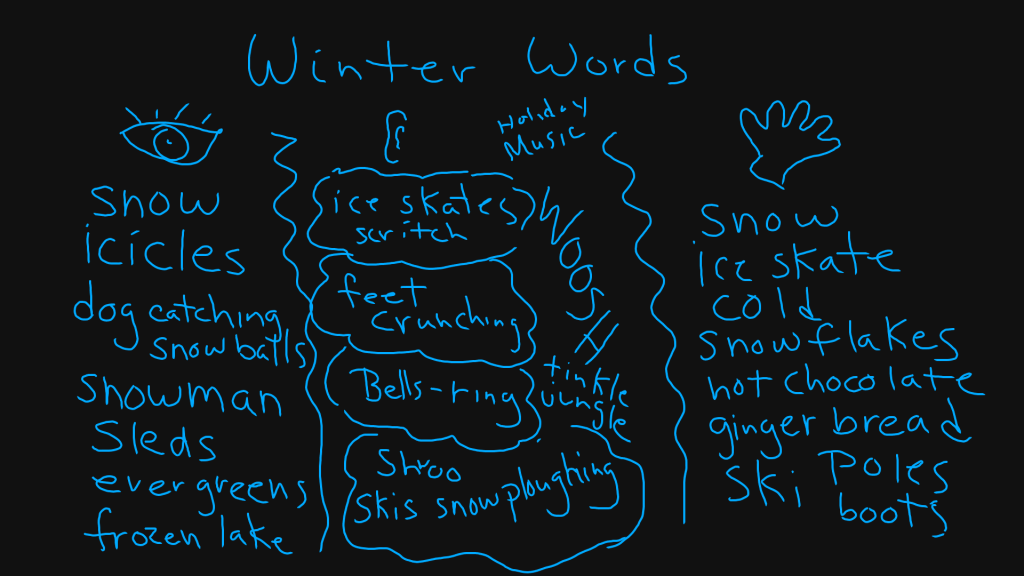 Winter Words
snow
icicles
dog catching
snowballs
snowman
Sleds
evergreens
frozen lake
Holiday
Music
ice skates
scritch
WOOSH
feet
crunching
Bells-ring
tinkle
jingle
Shroo
Skis snowploughing
snow
ice skate
cold
snowflakes
hot chocolate
gingerbread
Ski Poles
boots